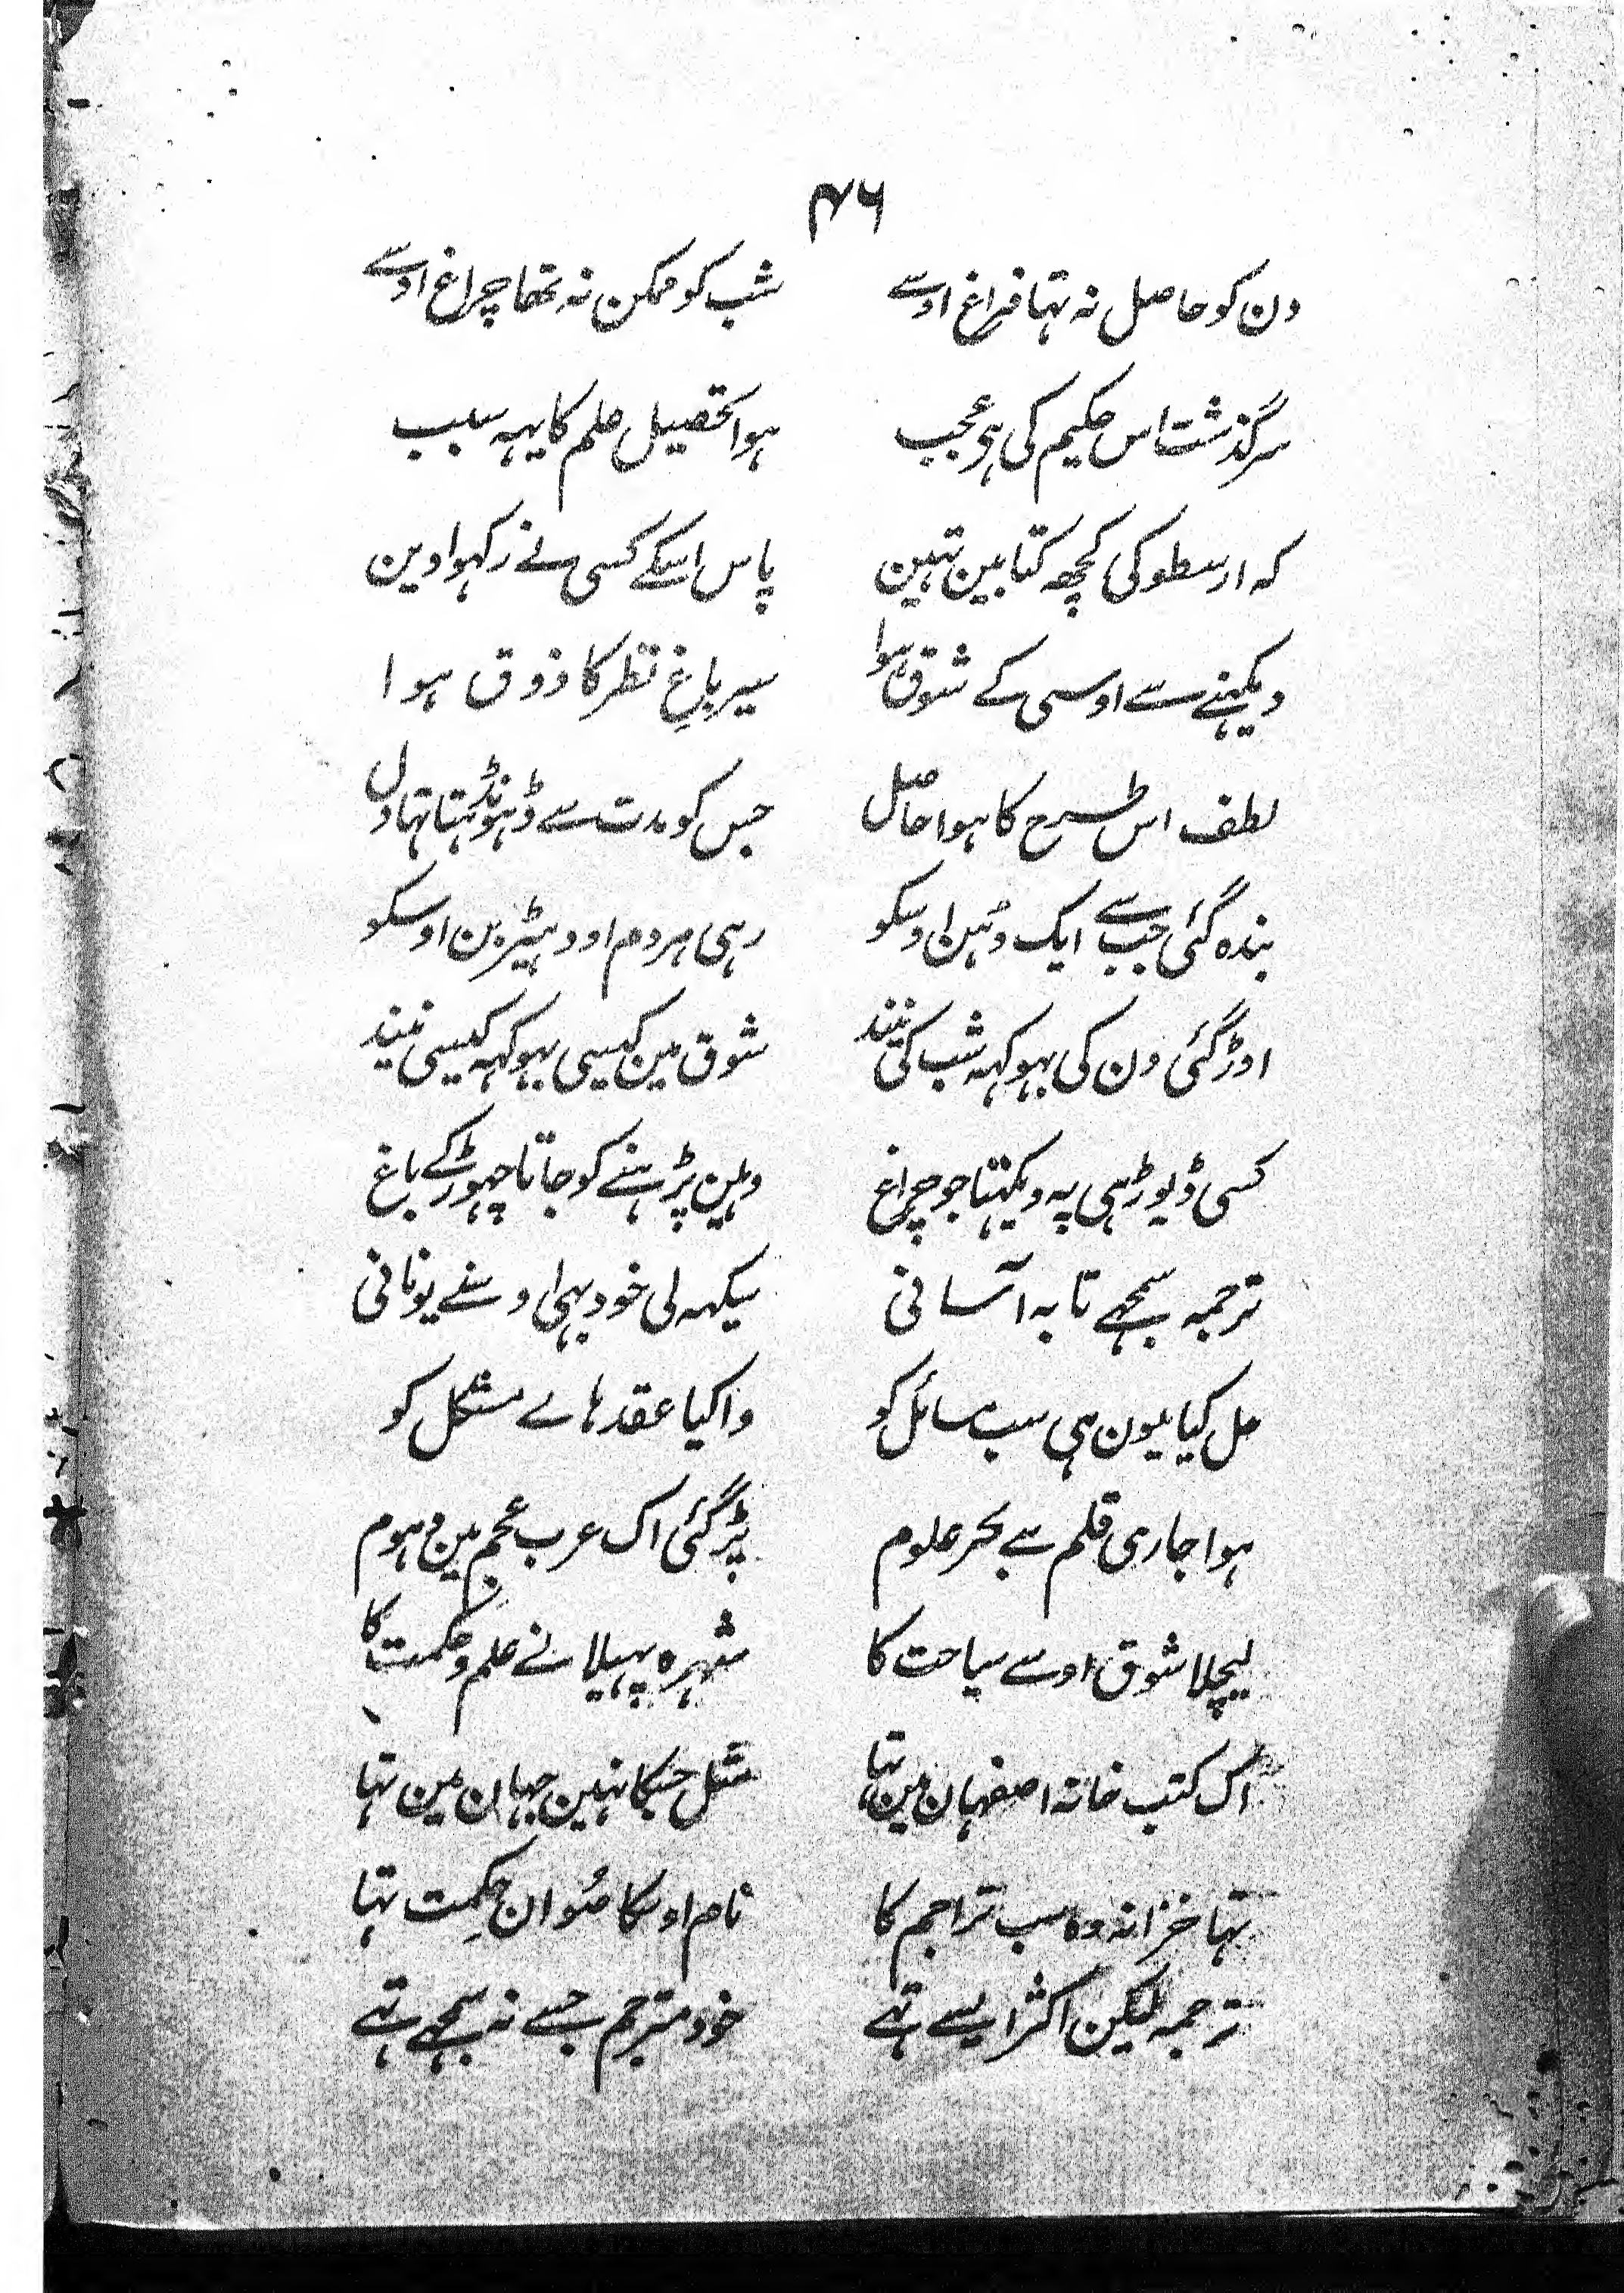 ۴۶
دن کو حاصل نہ تہا فراغ اوسے شب کو ممکن نہ تھا چراغ اوسے
سرگذشت اس حکیم کی ہی عجب ہوا تحصیل علم کا یہہ سبب
کہ ارسطو کی کچھہ کتابین تہین پاس اسکے کسی نے رکہوا دین
دیکہنے سے اوسی کے شوق ہوا سیر باغِ نظر کا ذوق ہوا
لطف اس طرح کا ہوا حاصل جس کو مدت سے ڈہونڈہتا تہا دل
بندہ گئی جب سے ایک دُہن اوسکو رہی ہردم اودہیڑبن اوسکو
اوڑ گئی دن کی بہوکہہ شب کی نیند شوق مین کیسی بہوکہہ کیسی نیند
کسی ڈیوڑہی پہ دیکہتا جو چراغ وہین پڑہنے کو جاتا چہوڑ کے باغ
ترجمہ سمجہے تا بہ آسانی سیکہہ لی خود بہی اوسنے یونانی
حل کیا یون ہی سب مسائل کو وا کیا عقدہاے مشکل کو
ہوا جاری قلم سے بحر علوم پڑ گئی اک عرب عجم مین دہوم
لیچلا شوق اوسے سیاحت کا شہرہ پہیلانے علم و حکمت کا
اک کتب خانہ اصفہان مین تہا مثل جسکا نہین جہان مین تہا
تہا خزانہ وہ سب تراجم کا نام اوسکا صُوان حکِمت تہا
ترجمہ لیکن اکثر ایسے تہے خود مترجم جسے نہ سمجہے تہے